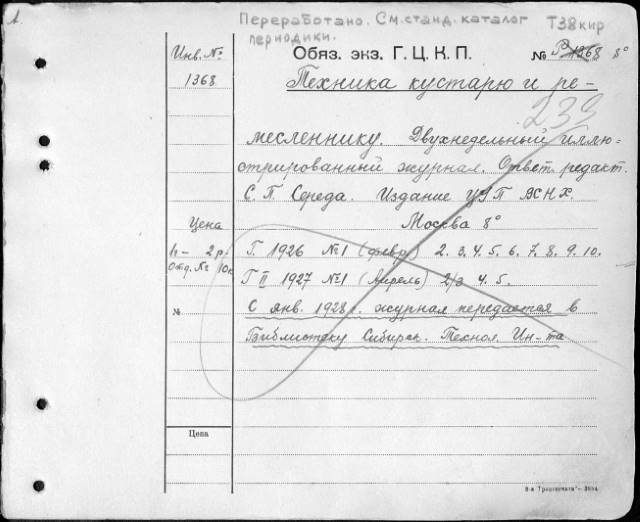 1.
Переработано. См. станд. каталог Т38кир
периодики.
Инв. № Обяз. экз. Г. Ц. К. П. № Р 1368 8°
1368 Техника кустарю и ре-
233
месленнику. Двухнедельный иллю-
стрированный журнал. Ответ. редакт.
С. П. Середа. Издание ЦУП ВСНХ.
Цена Москва 8°
на - 2 р. Г. 1926 №1 (февр) 2. 3. 4. 5. 6. 7. 8. 9. 10.
Отд. № 10к Г II 1927 №1 (Апрель) 2/3 4. 5.
№ С янв. 1928 г. журнал передается в
Библиотеку Сибирск. Технол. Ин-та
Цена